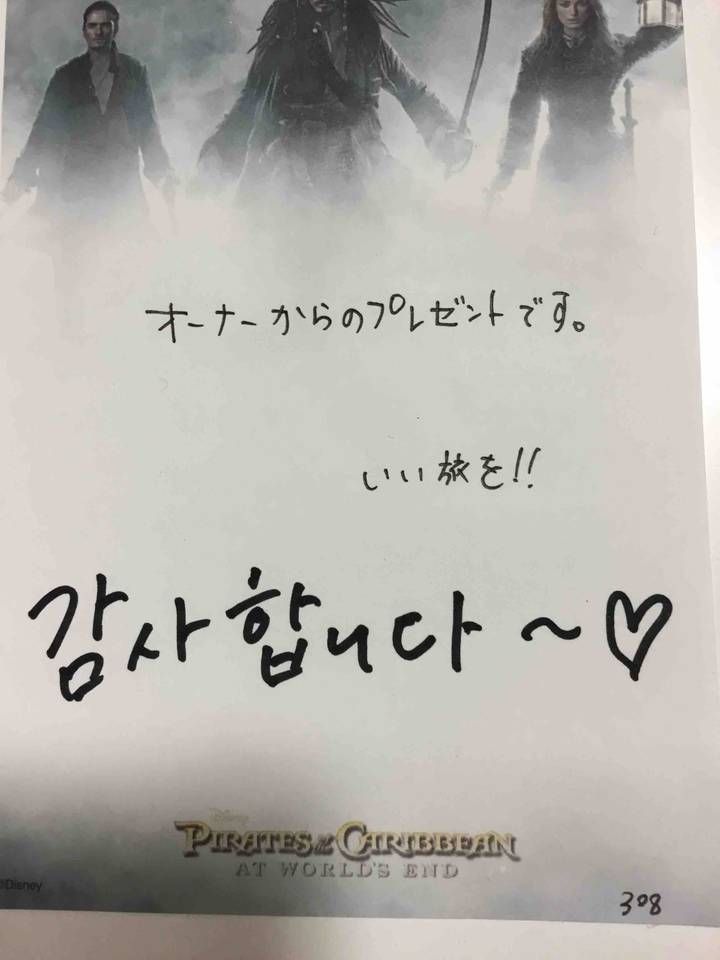 オーナーからのプレゼントです。
いい旅を!!
감사합니다~♡
Disney
PIRATES of the CARIBBEAN
AT WORLD'S END
©Disney
308